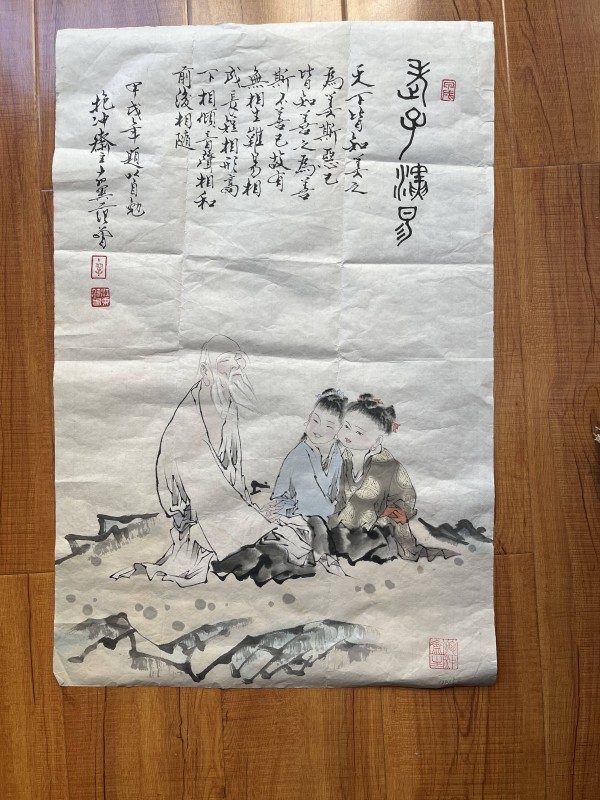 老子演易
天下皆知美之
為美斯惡已
皆知善之為善
斯不善已故有
無相生難易相
成長短相形高
下相傾音聲相和
前後相隨
甲戌年題以自勉
抱沖齋主十翼范曾